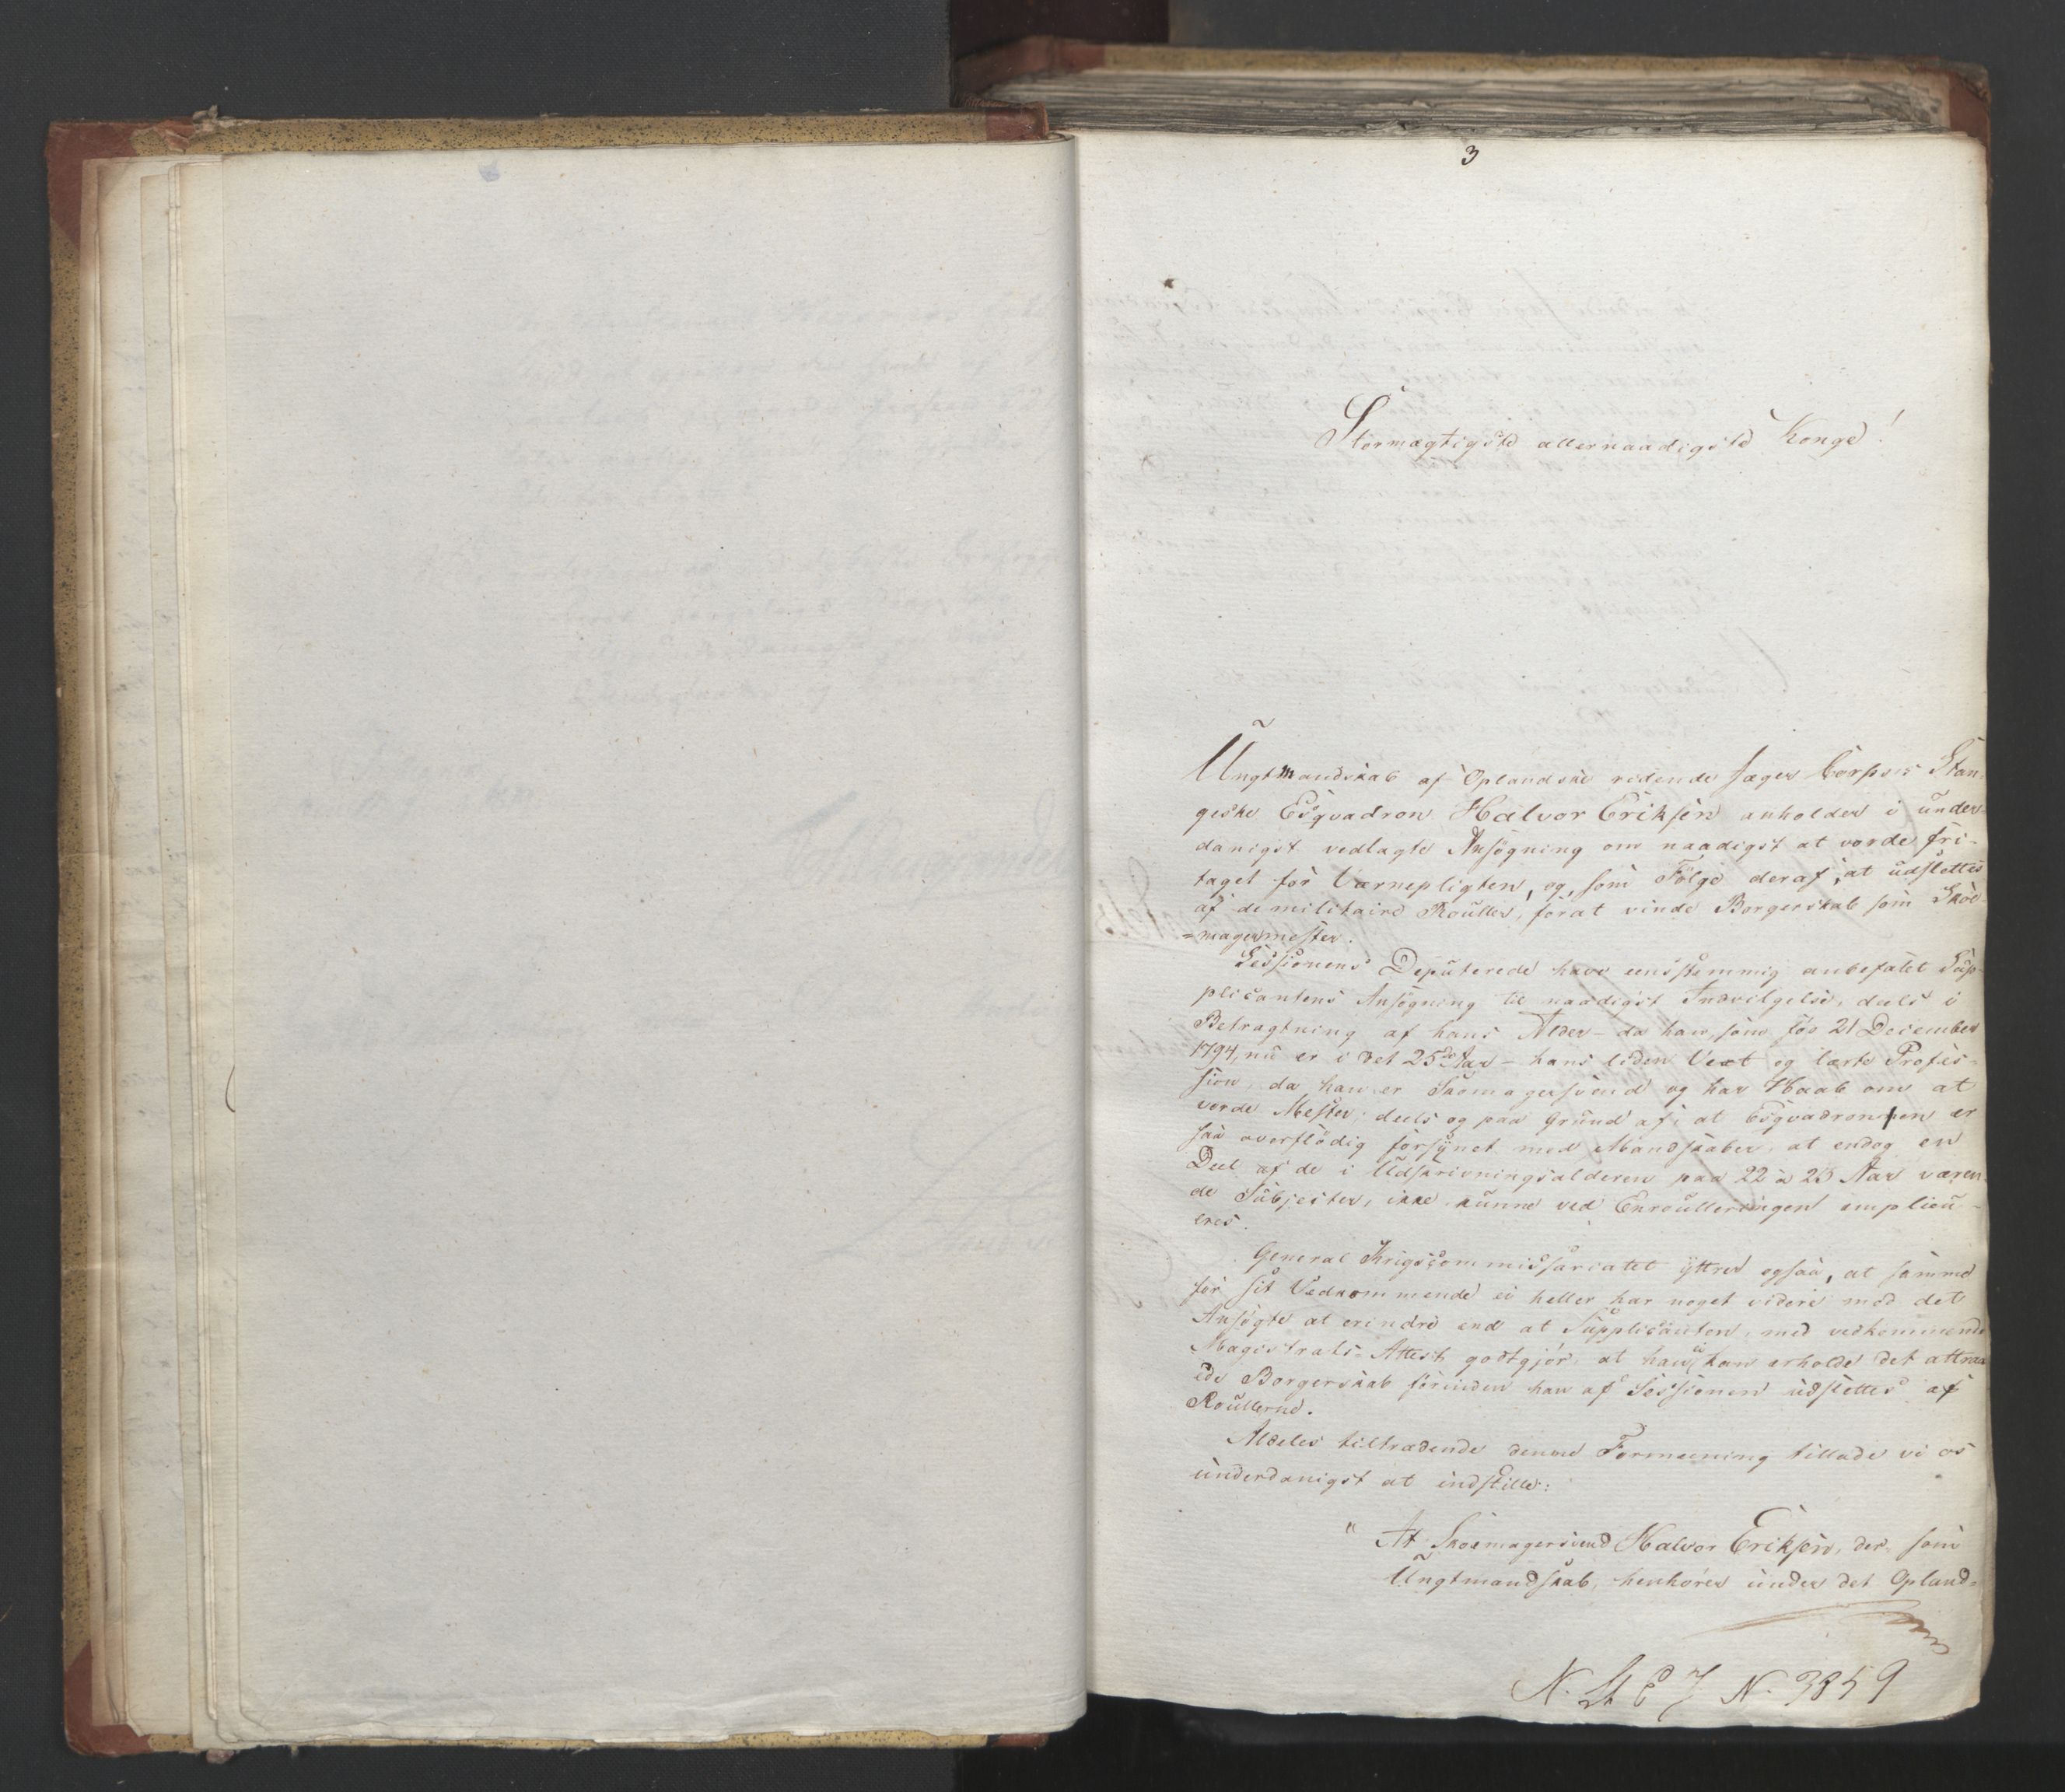 3
Stormægtigste allernaadigste Konge!
Ungtmandskab af Oplandske ridende Jæger Corpses Stan-
geske Esqvadron Halvor Eriksen anholder i under-
danigst vedlagte Ansøgning om naadigst at vorde fri-
taget for Værnepligten, og, som Følge deraf, at udslettes
af de militaire Rouller, forat vinde Borgerskab som Skoe-
=magermester.
Sessionens Deputerede have eensstemmig anbefalet Sup-
plicantens Ansøgning til naadigst Indvilgelse, deels i
Betragtning af hans Alder – da han, som fød 21 December
1794, nu er i det 25de Aar – hans liden Vext og lærte Profes-
sion, da han er Skomagersvend og har Haab om at
vorde Mester; deels og paa Grund af, at Esqvadronen er
saa overflødig forsynet med Mandskaber, at endog en
Deel af de i Udskrivningsalderen paa 22 à 23 Aar væren-
de Subjecter, ikke kunne ved Enroulleringen emplieu-
eres.
General Krigscommissariatet yttrer ogsaa, at samme
for sit Vedkommende ei heller har noget videre mod det
Ansøgte at erindre end at Supplicanten, med vedkommende
Magistrats-Attest godtgjør, at han ei kan erholde det attraa-
ede Borgerskab forinden han af Sessionen udslettes af
Roullerne.
Aldeles tiltrædende denne Formeening tillade vi os
underdanigst at indstille:
" At Skoemagersvend Halvor Eriksen, der som
Ungtmandskab, henhører under det Opland-
N. 3859